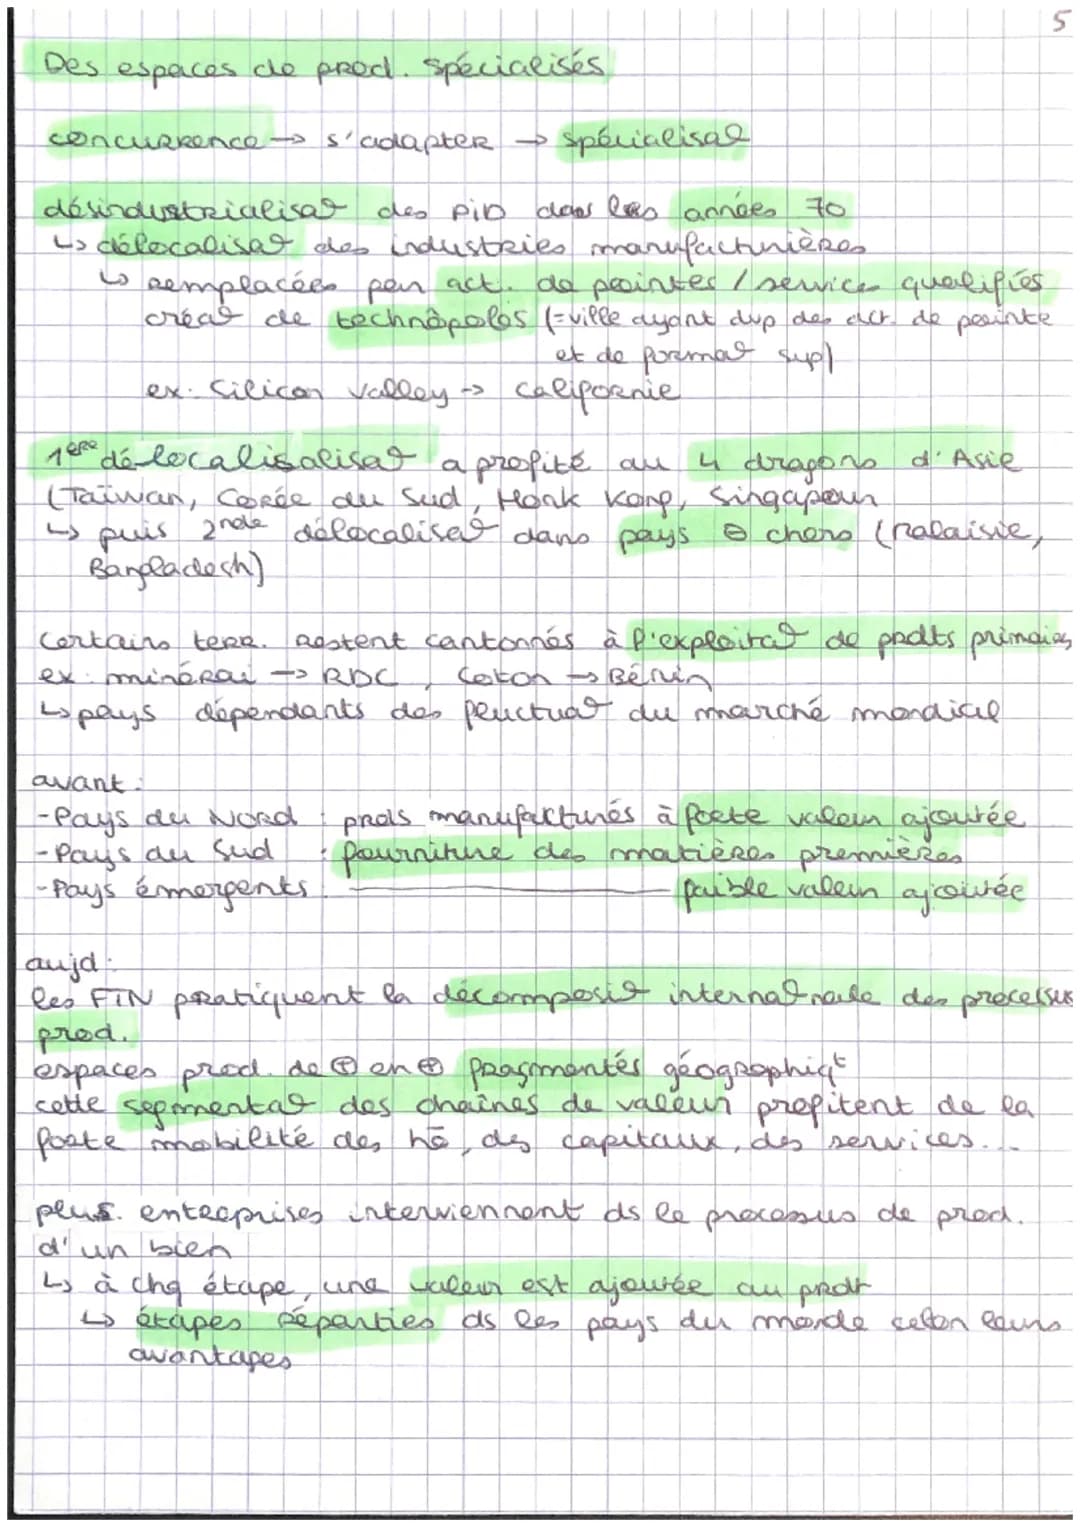 5
Des espaces de prod. spécialisés
concurrence → s'adapter → spécialisat°
désindustrialisat° des PID dans les années 70
↳ délocalisat° des industries manufacturières
↳ remplacées par act. de pointes / service qualifiés
créat° de technôpoles (=ville ayant dvp des act. de pointe
et de format° sup)
ex: Silicon Valley → Californie
1ère dé-localisalisat° a profité au 4 dragons d'Asie
(Taïwan, Corée du Sud, Honk Kong, Singapour
↳ puis 2nde délocalisat° dans pays ⊖ chers (Malaisie,
Bangladesh)
certains terr. restent cantonnés à l'exploitat° de prdts primaires
ex: minérai → RDC, Coton → Bénin
↳ pays dépendants des fluctuat° du marché mondial
avant :
-Pays du Nord : prods manufacturés à forte valeur ajoutée
-Pays du Sud : fourniture des matières premières
-Pays émergents ——— faible valeur ajoutée
aujd :
les FTN pratiquent la décomposit° internat°nale des processus
prod.
espaces prod. de ⊕ en ⊕ fragmentés géographiqt
cette segmentat° des chaînes de valeur profitent de la
forte mobilité des hô, des capitaux, des services...
plus. entreprises interviennent ds le processus de prod.
d'un bien
↳ à chq étape, une valeur est ajoutée au prdt
↳ étapes réparties ds les pays du monde selon leurs
avantages